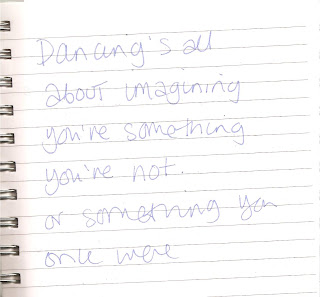 Dancing's all
about imagining
you're something
you're not.
or something you
once were